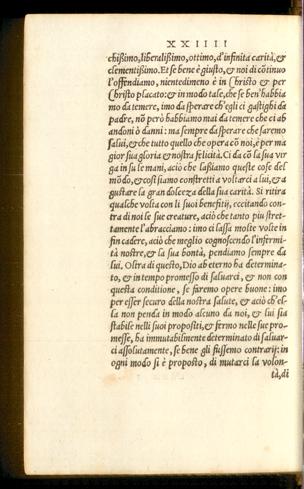 XXIIII
chißimo, liberalißimo, ottimo, d'infinita carità, &
clementißimo. Et se bene è giusto, & noi di cōtinuo
l'offendiamo, nientedimeno è in Christo & per
Christo placato: & in modo tale, che se ben'habbia
mo da temere, imo da sperare ch'egli ci gastighi da
padre, nō però habbiamo mai da temere che ci ab
andoni ò danni: ma sempre da sperare che saremo
salui, & che tutto quello che opera cō noi, è per ma
gior sua gloria & nostra felicità. Ci da cō la sua vir
ga in su le mani, aciò che laßiamo queste cose del
mōdo, & cosi siamo constretti a voltarci a lui, & a
gustare la gran dolcezza della sua carità. Si ritira
qualche volta con li suoi benefitij, eccitando con
tra di noi le sue creature, aciò che tanto piu stret-
tamente l'abracciamo: imo ci lassa molte volte in
fin cadere, aciò che meglio cognoscendo l'infermi
tà nostre, & la sua bontà, pendiamo sempre da
lui. Oltra di questo, Dio ab eterno ha determina
to, & in tempo promesso di saluarci, & non con
questa conditione, se faremo opere buone: imo
per esser securo della nostra salute, & aciò ch'el-
la non penda in modo alcuno da noi, & lui sia
stabile nelli suoi propositi, & fermo nelle sue pro
messe, ha immutabilmente determinato di saluar
ci assolutamente, se bene gli fussemo contrarij: in
ogni modo si è proposto, di mutarci la volon-
tà, di